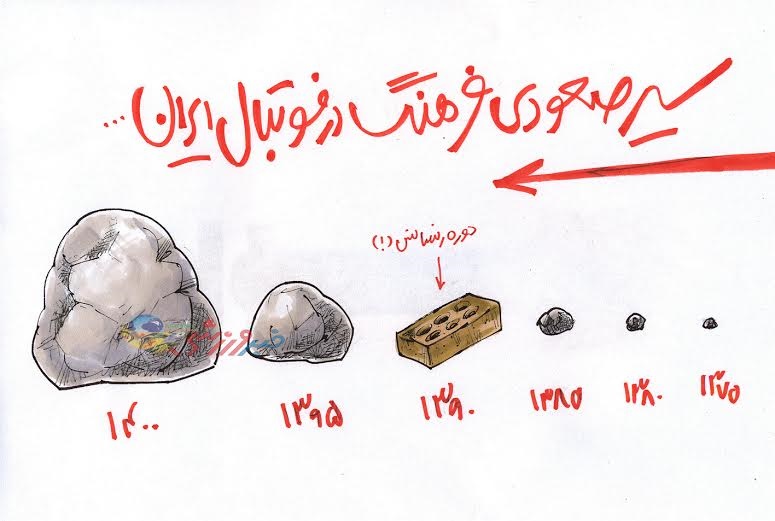 سیر صعودی فرهنگ در فوتبال ایران...
دوره رنسانس (!)
۱۳۷۵
۱۳۸۰
۱۳۸۵
۱۳۹۰
۱۳۹۵
۱۴۰۰